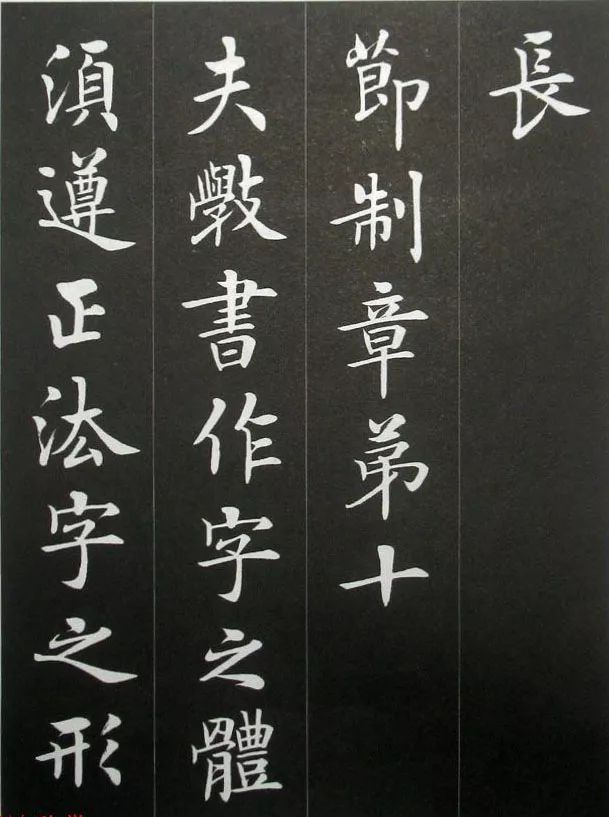 長
節制章弟十
夫斅書作字之體
須遵正法字之形